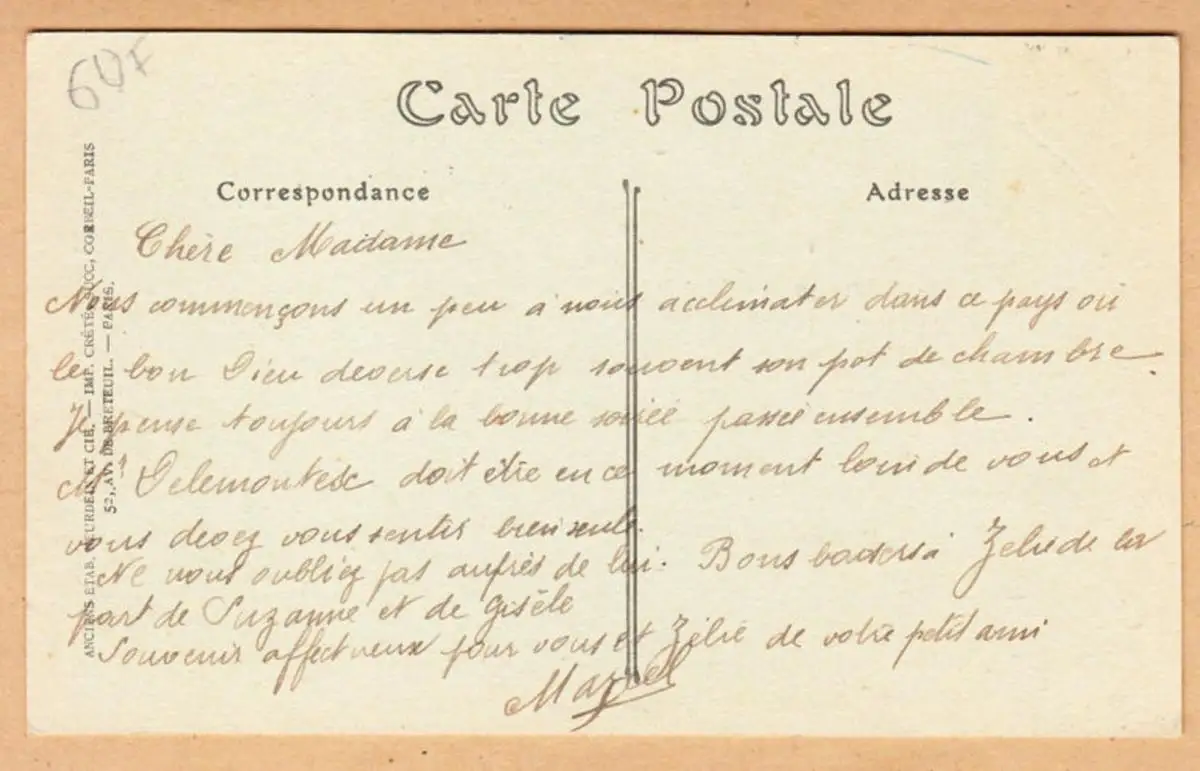 60F
Carte Postale
Correspondance
Adresse
Chère Madame
Nous commençons un peu à nous acclimater dans ce pays où
le bon Dieu deverse trop souvent son pot de chambre
Je pense toujours à la bonne soirée passée ensemble.
Delemontex doit être en ce moment loin de vous et
vous devez vous sentir bien seule.
Ne nous oubliez pas auprès de lui. Bons baisers à Zélie de la
part de Suzanne et de Gisèle
Souvenir affectueux pour vous et Zélie de votre petit ami
Marcel
ANCIENS ETAB. NEURDEIN ET CIE. — IMP. CRÉTÉ, SUCC, CORBEIL-PARIS
52, AV. DE BRETEUIL. — PARIS.